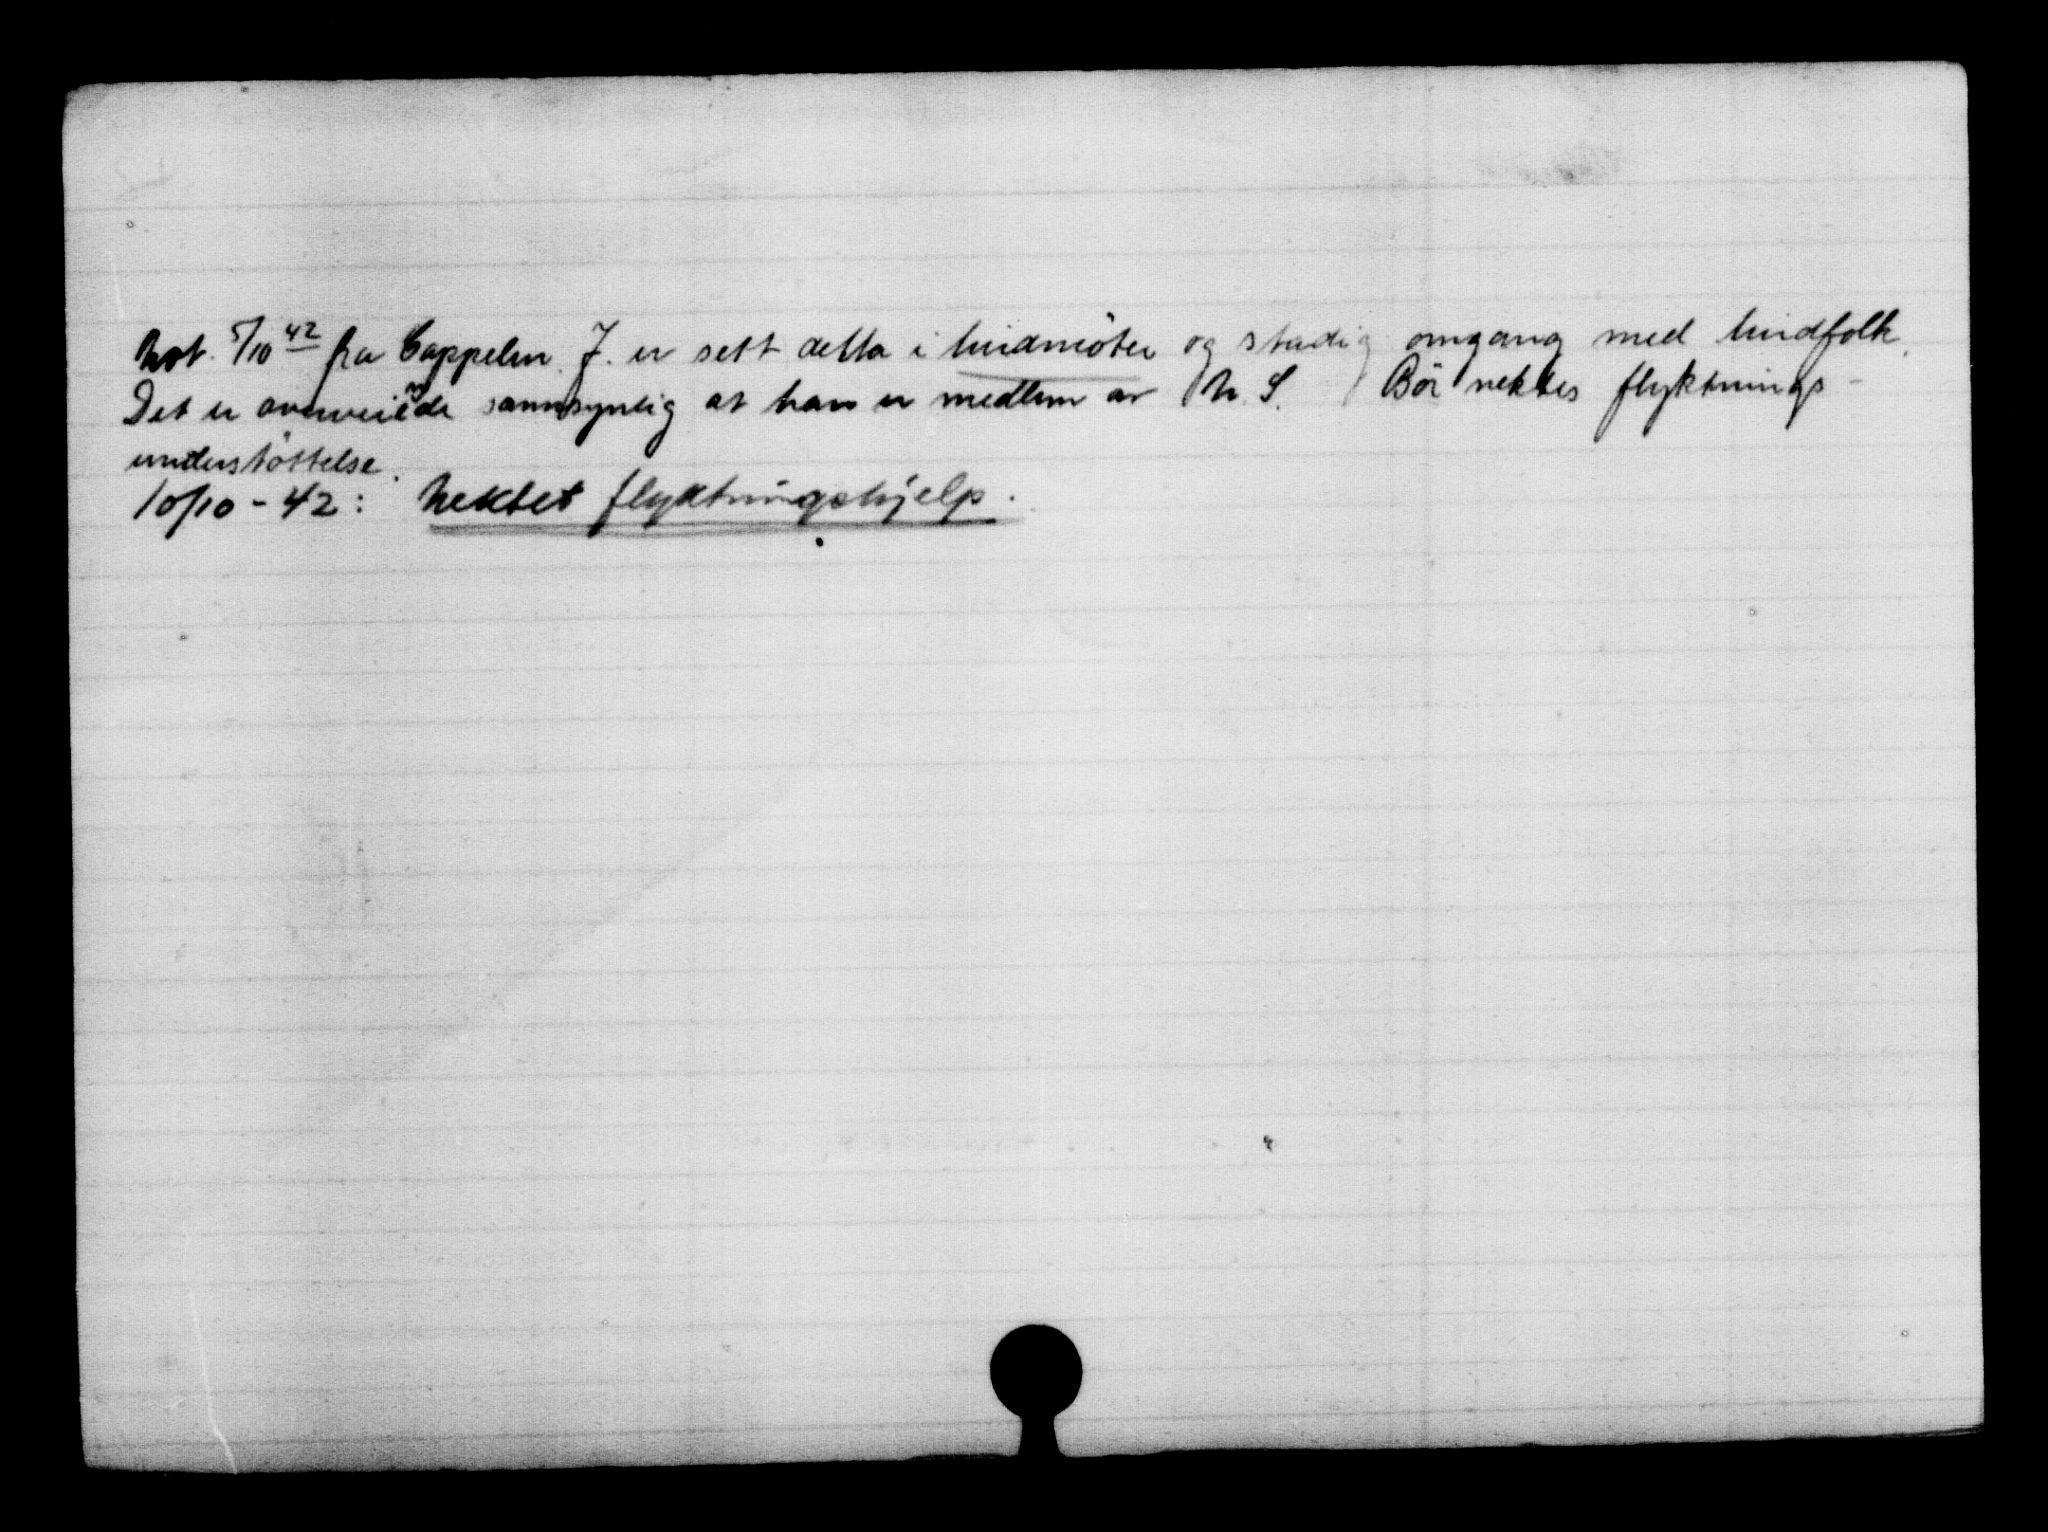 Not. 5/10 42 fra Cappelen. J. er sett delta i hirdmöter og stadig omgang med hirdfolk.
Det er overveiende sannsynlig at han er medlem av N. S. Bör nektes flyktnings-
understöttelse.
10/10 - 42: Nektet flyktningshjelp.